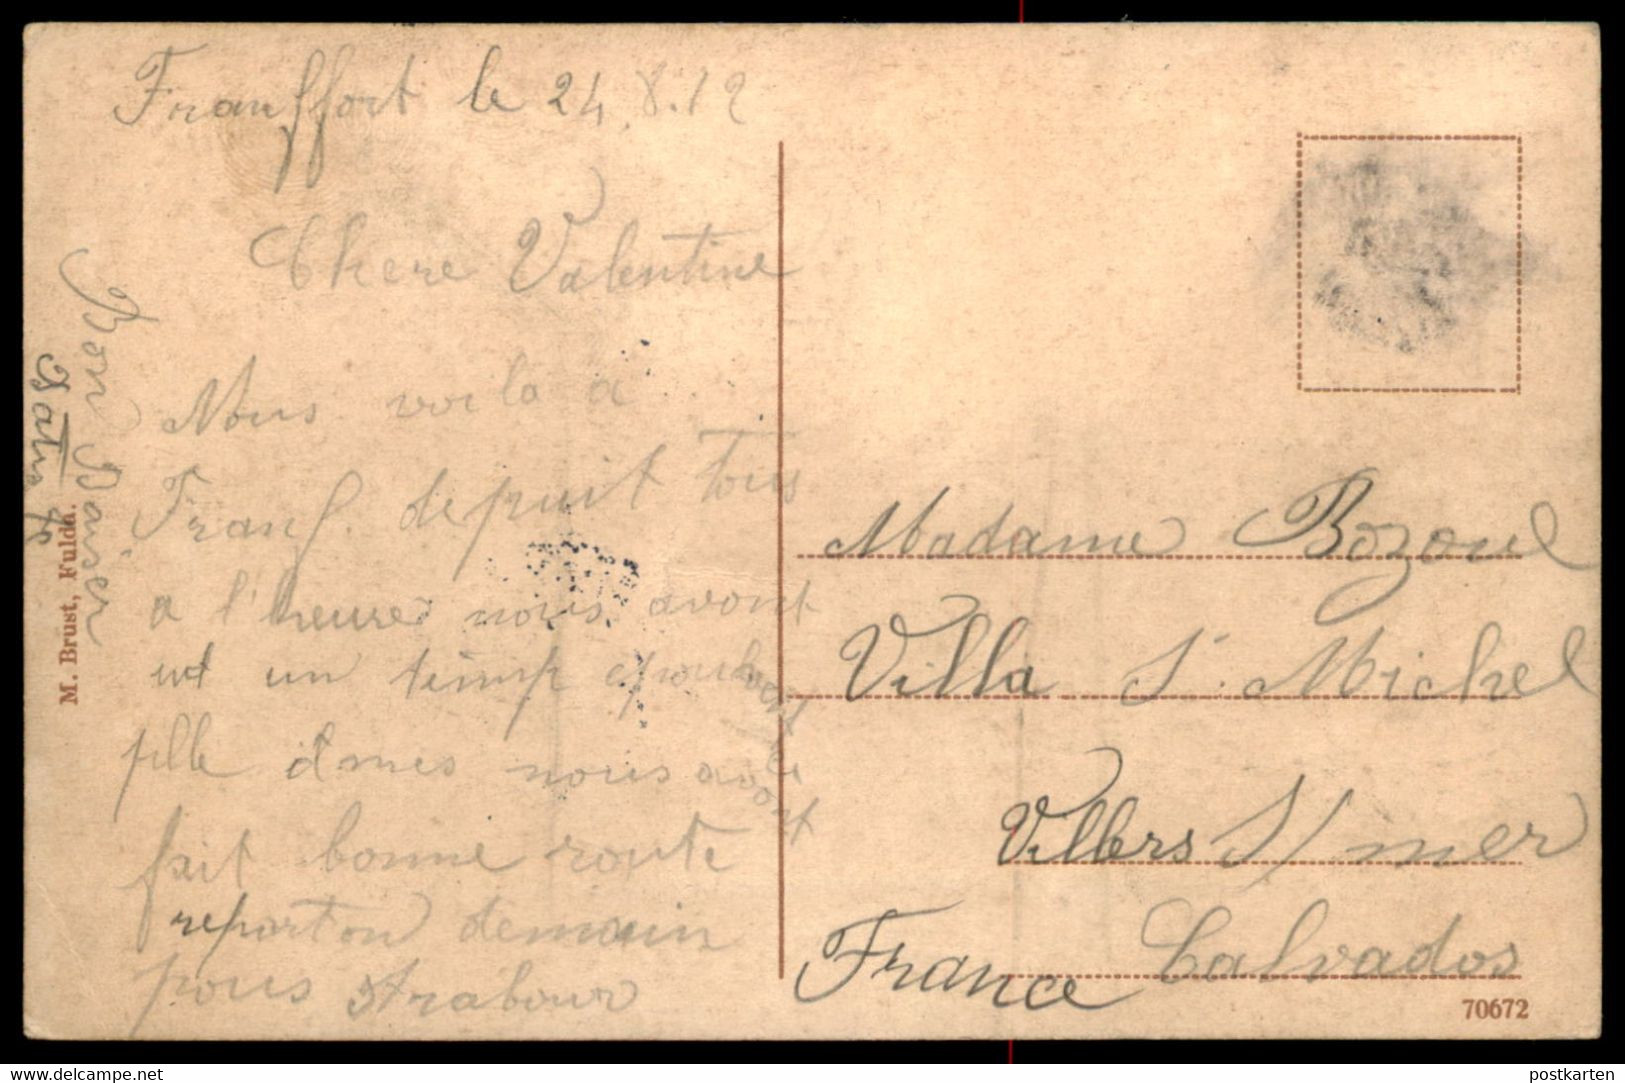 Franffort le 24.8.12
Chere Valentine
Nous voila a
Franf. depuit tous
a l'heure nous avont
un temp
plle nous avont
fait bonne route
reparton demain
pous strabour
Bon Baiser
M. Brust, Fulda.
Madame Bozoul
Villa St. Michel
Villers S/mer
France Calvados
70672
www.delcampe.net
postkarten